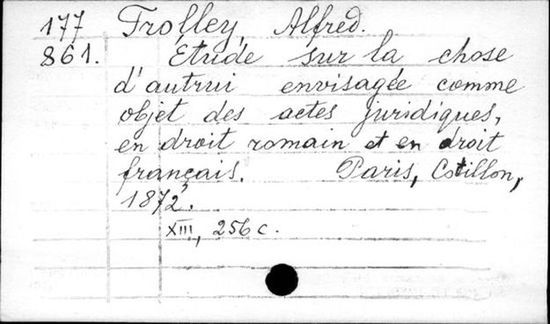 177 Trolley, Alfred.
861. Etude sur la chose
d'autrui envisagée comme
objet des actes juridiques,
en droit romain et en droit
français. Paris, Cotillon,
1872.
XIII, 256 c.